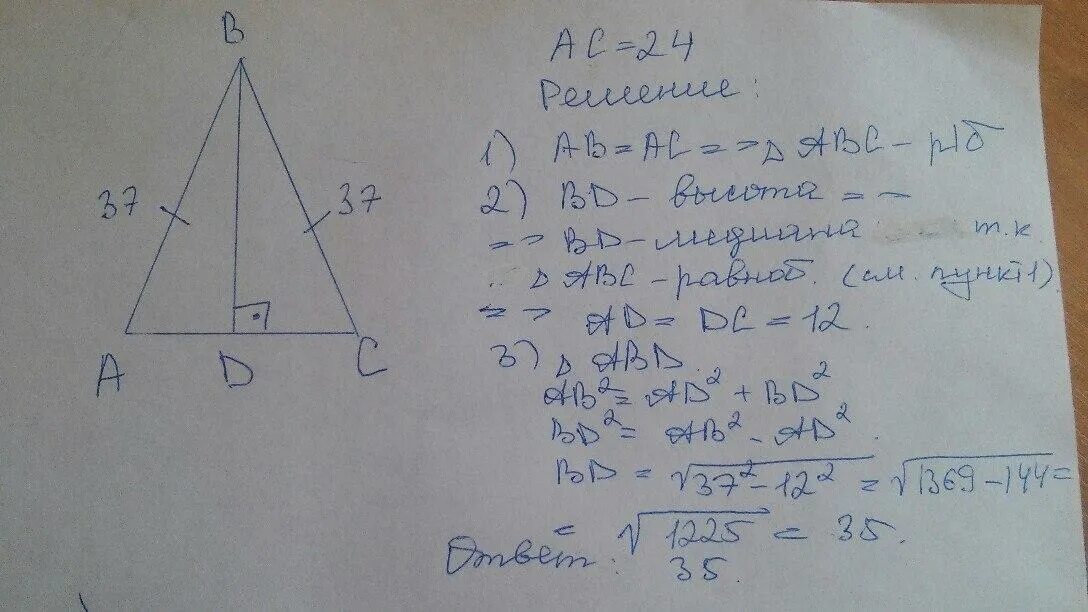 B
37
37
A
D
C
AC = 24
Решение:
1) AB = AC => △ ABC - р/б
2) BD - высота =>
=> BD - медиана т.к.
△ ABC - равноб. (см. пункт 1)
=> AD = DC = 12.
3) △ ABD.
AB² = AD² + BD²
BD² = AB² - AD².
BD = √37² - 12² = √1369 - 144 =
= √1225 = 35.
Ответ: 35.